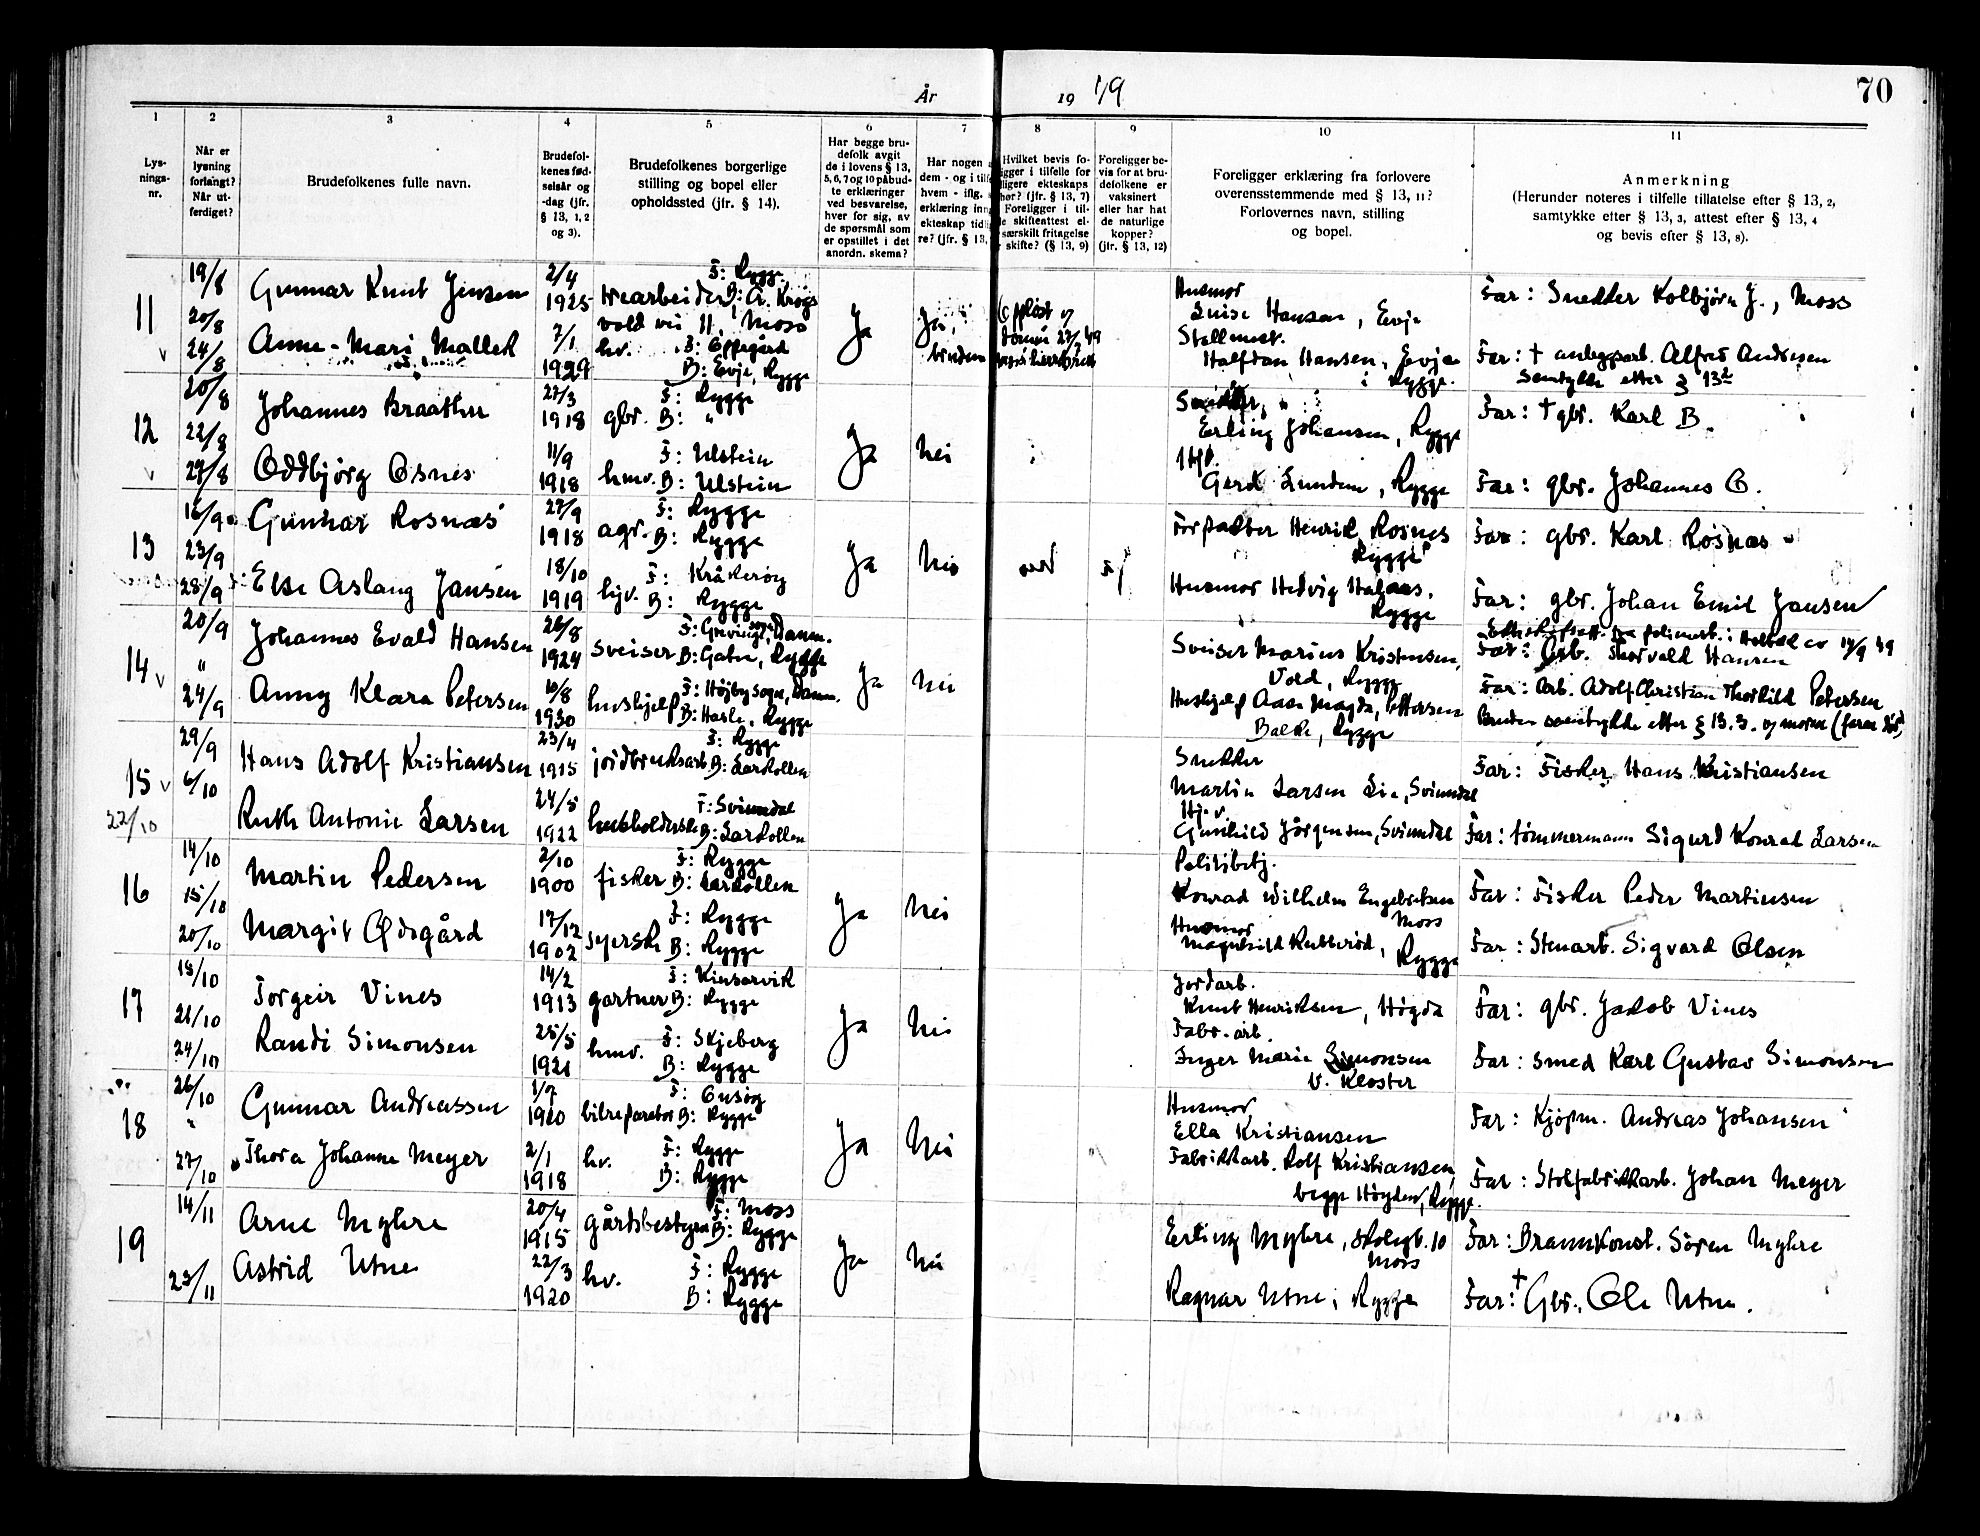 År 1949
70
1
Lys-
nings-
nr.
2
Når er
lysning
forlangt?
Når ut-
ferdiget?
3
Brudefolkenes fulle navn.
4
Brudefol-
kenes fød-
selsår og
-dag (jfr.
§ 13, 1, 2
og 3).
5
Brudefolkenes borgerlige
stilling og bopel eller
opholdssted (jfr. § 14).
6
Har begge bru-
defolk avgit
de i lovens § 13,
5, 6, 7 og 10 påbud-
te erklæringer
ved besvarelse,
hver for sig, av
de spørsmål som
er opstillet i det
anordn. skema?
7
Har nogen a
dem - og i tilfe
hvem - iflg.
erklæring inng
ekteskap tidl
re? (jfr. § 13,
8
Hvilket bevis fo-
igger i tilfelle for
ligere ekteskaps
hør? (jfr. § 13, 7)
Foreligger i til-
le skifteattest el-
særskilt fritagelse
skifte? (§ 13, 9)
9
Foreligger be-
vis for at bru-
defolkene er
vaksinert
eller har hat
de naturlige
kopper?
(jfr. § 13, 12)
10
Foreligger erklæring fra forlovere
overensstemmende med § 13, 11?
Forlovernes navn, stilling
og bopel.
11
Anmerkning
(Herunder noteres i tilfelle tillatelse efter § 13, 2,
samtykke efter § 13, 3, attest efter § 13, 4
og bevis efter § 13, 8).
11
19/8
20/8
24/8
Gunnar Knut Jensen
2/4
1925
F: Rygge
trearbeider B: A. Krogs
vold vei 11, Moss
Ja
Ja,
bruden
Husmor
Luise Hansen, Evje
Far: Snekker Kolbjørn J., Moss
Anne-Mari Mallek
7/1
1929
hv. F: Oppegård
B: Evje, Rygge
Halfdan Hansen, Evje
i Rygge.
Far: † anleggsarb. Alfred Andresen
Samtykke etter § 13²
12
20/8
22/8
27/8
Johannes Braathen
27/3
1918
F: Rygge
gbr. B: "
Ja
Nei
Erling Johansen, Rygge
Far: † gbr. Karl B.
Oddbjørg Osnes
11/9
1918
F: Ulstein
hmv. B: Ulstein
Gerd Lunden, Rygge
Far: gbr. Johannes O.
13
16/9
23/9
28/9
Gunnar Rosnæs
27/9
1918
F: Rygge
agr. B: Rygge
Ja
Nei
Forpakter Henrik Rosnes
Rygge
Far: gbr. Karl Rosnæs
Else Aslaug Jansen
18/10
1919
F: Kråkerøy
hjv. B: Rygge
Husmor Hedvig
Rygge
Far: gbr. Johan Emil Jansen
14
20/9
"
24/9
Johannes Evald Hansen
26/8
1924
F: Grevinge sogn, Danm.
sveiser B: Gatu, Rygge
Ja
Nei
Sveiser Marius Kristensen,
Vold, Rygge
Far: Arb. Thorvald Hansen
Anny Klara Petersen
10/8
1930
hushjelp F: Højby sogn, Danm.
B: Hasle, Rygge
Hushjelp Aase Magda Pettersen
Balke, Rygge
Far: Arb. Adolf Christian Thorkild Petersen
Bruden samtykke etter § 13.3. og moren (faren død)
15
22/10
29/9
6/10
Hans Adolf Kristiansen
23/4
1915
F: Rygge
jordbruksarb B: Larkollen
Snekker
Martin Larsen Lie, Svinndal
Far: Fisker Hans Kristiansen
Ruth Antonie Larsen
24/5
1922
F: Svinndal
husholderske B: Larkollen
Hj.v.
Gunhild Jørgensen, Svinndal
Far: tømmermann Sigurd Konrad Larsen
16
14/10
15/10
20/10
Martin Pedersen
2/10
1900
F: Rygge
fisker B: Larkollen
Ja
Nei
Politibetj.
Konrad Wilhelm Engebretsen
Moss
Far: Fisker Peder Martinsen
Margit Ødegård
17/12
1902
F: Rygge
syerske B: Rygge
Husmor
Magnhild Rubberød, Rygge
Far: Stenarb. Sigvard Olsen
17
18/10
21/10
24/10
Torgeir Vines
14/2
1913
F: Kinsarvik
gartner B: Rygge
Ja
Nei
Jordarb.
Knut Henriksen, Høgda
Far: gbr. Jakob Vines
Randi Simonsen
25/5
1921
F: Skjeberg
hmv. B: Rygge
Fabr.arb.
Inger Marie Simonsen
V. Kloster
Far: smed Karl Gustav Simonsen
18
26/10
"
27/10
Gunnar Andreassen
1/7
1920
F: Onsøy
bilreparatør B: Rygge
Ja
Nei
Husmor
Ella Kristiansen
Far: Kjøpm. Andreas Johansen
Thora Johanne Meyer
2/1
1918
hv. F: Rygge
B: Rygge
Fabrikkarb. Rolf Kristiansen
begge Høyden, Rygge.
Far: Stolfabrikkarb. Johan Meyer
19
14/11
23/11
Arne Myhre
20/4
1915
F: Moss
gårdsbestyrer B: Rygge
Ja
Nei
Erling Myhre, Skolegt. 10
Moss
Far: Brannkonst. Søren Myhre
Astrid Utne
22/3
1920
hv. F: Rygge
B: Rygge
Ragnar Utne, Rygge
Far: † Gbr. Ole Utne.